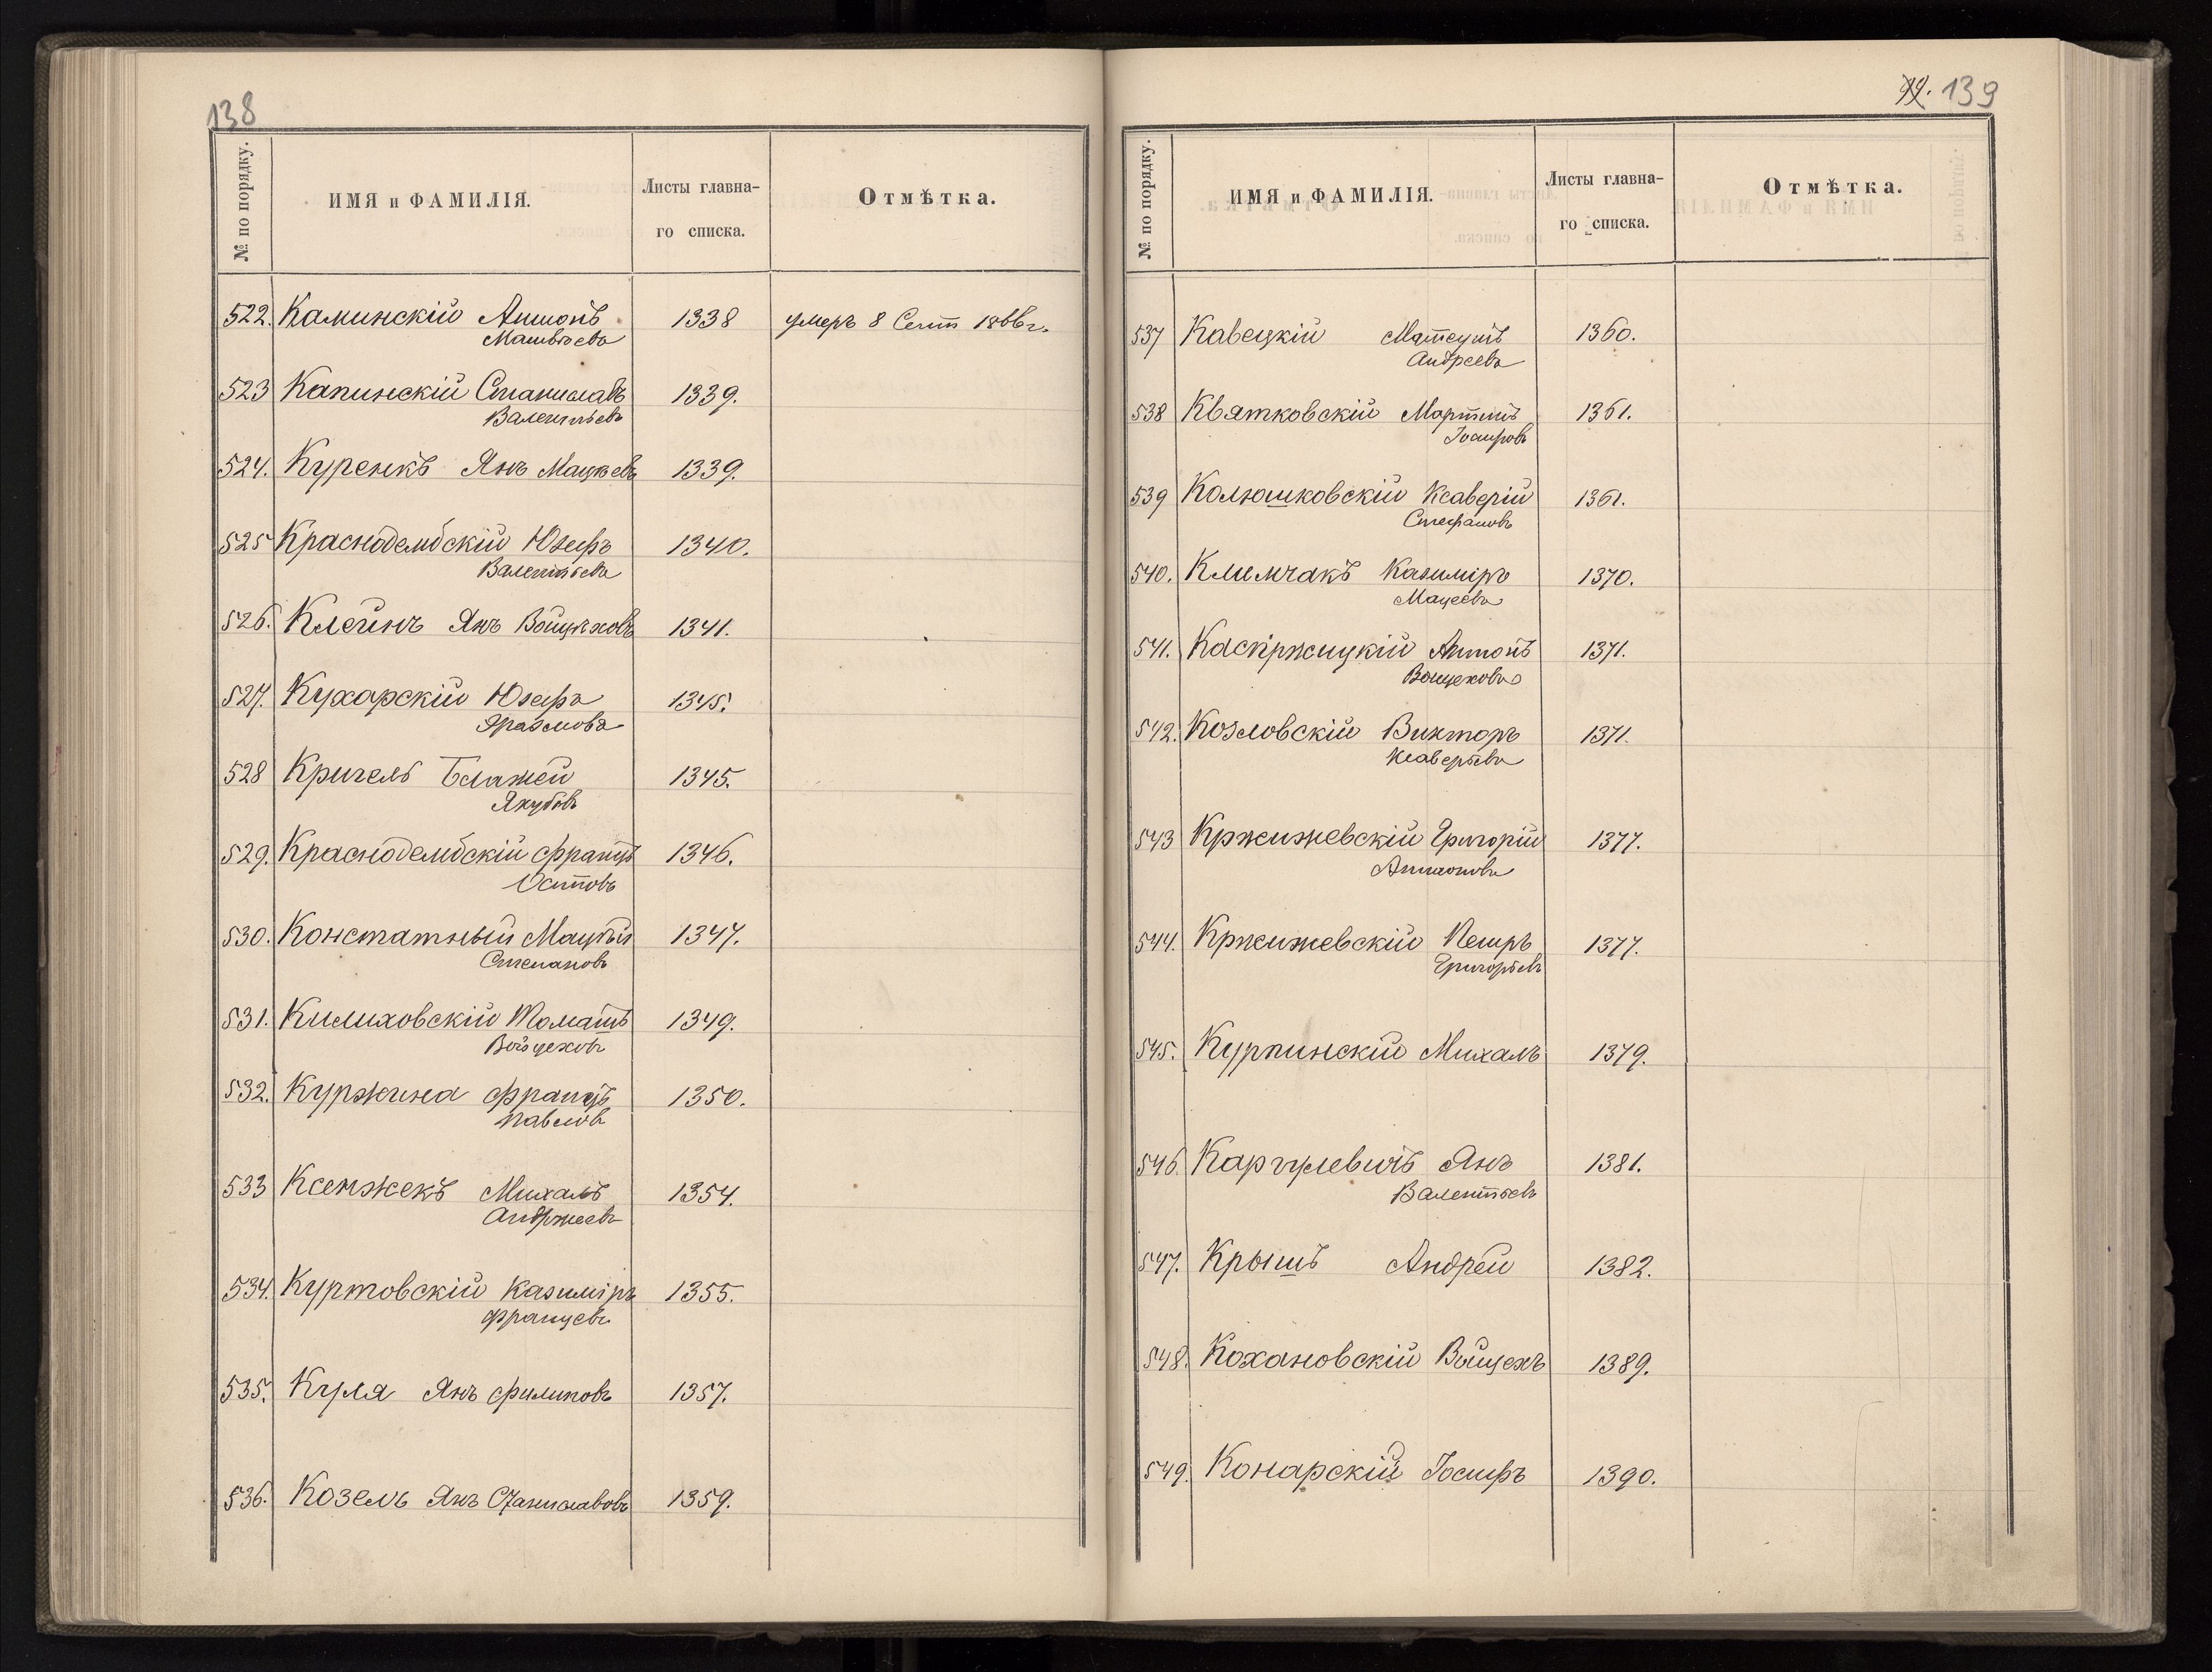 138
№ по порядку. ИМЯ и ФАМИЛІЯ. Листы главна- Отмѣтка.
го списка.
522. Каминскій Антонъ 1338 умеръ 8 Сент 1866 г.
Матвѣева
523 Капинскій Станиславъ 1339.
Валентьевъ
524. Куренкъ Янъ Мацѣевъ 1339.
525 Краснодембскій Юзефъ 1340.
Валентьева
526. Клейнъ Янъ Войцѣховъ 1341.
527. Кухарскій Юзефъ 1345.
Эразмова
528 Кригель Блажей 1345.
Якубовъ
529. Краснодембскій Францъ 1346.
530. Констатный Мацѣй 1347.
Степановъ
531. Килиховскій Томашъ 1349.
Войцеховъ
532. Куржина Францъ 1350.
Павловъ
533 Ксенжекъ Михалъ 1354.
Андржеевъ
534. Куртовскій Казиміръ 1355.
Францевъ
535. Куля Янъ Филиповъ 1357.
536. Козелъ Янъ Станиславовъ 1359.
139
№ по порядку. ИМЯ и ФАМИЛІЯ. Листы главна- Отмѣтка.
го списка.
537 Кавецкій Матеушъ 1360.
Андреевъ
538 Квятковскій Мартинъ 1361.
Іосифовъ
539 Колюшковскій Ксаверій 1361.
Стефановъ
540. Климчакъ Казиміръ 1370.
Мацеева
541. Каскржицкій Антонъ 1371.
Войцехова
542. Козловскій Викторъ 1371.
Ксаверьева
543 Кржижевскій Григорій 1377.
Антонова
544. Кржижевскій Петръ 1377.
Григорьевъ
545. Курпинскій Михалъ 1379.
546. Каргулевичъ Янъ 1381.
Валентьевъ
547. Крышъ Андрей 1382.
548. Кохановскій Войцехъ 1389.
549. Конарскій Іосифъ 1390.